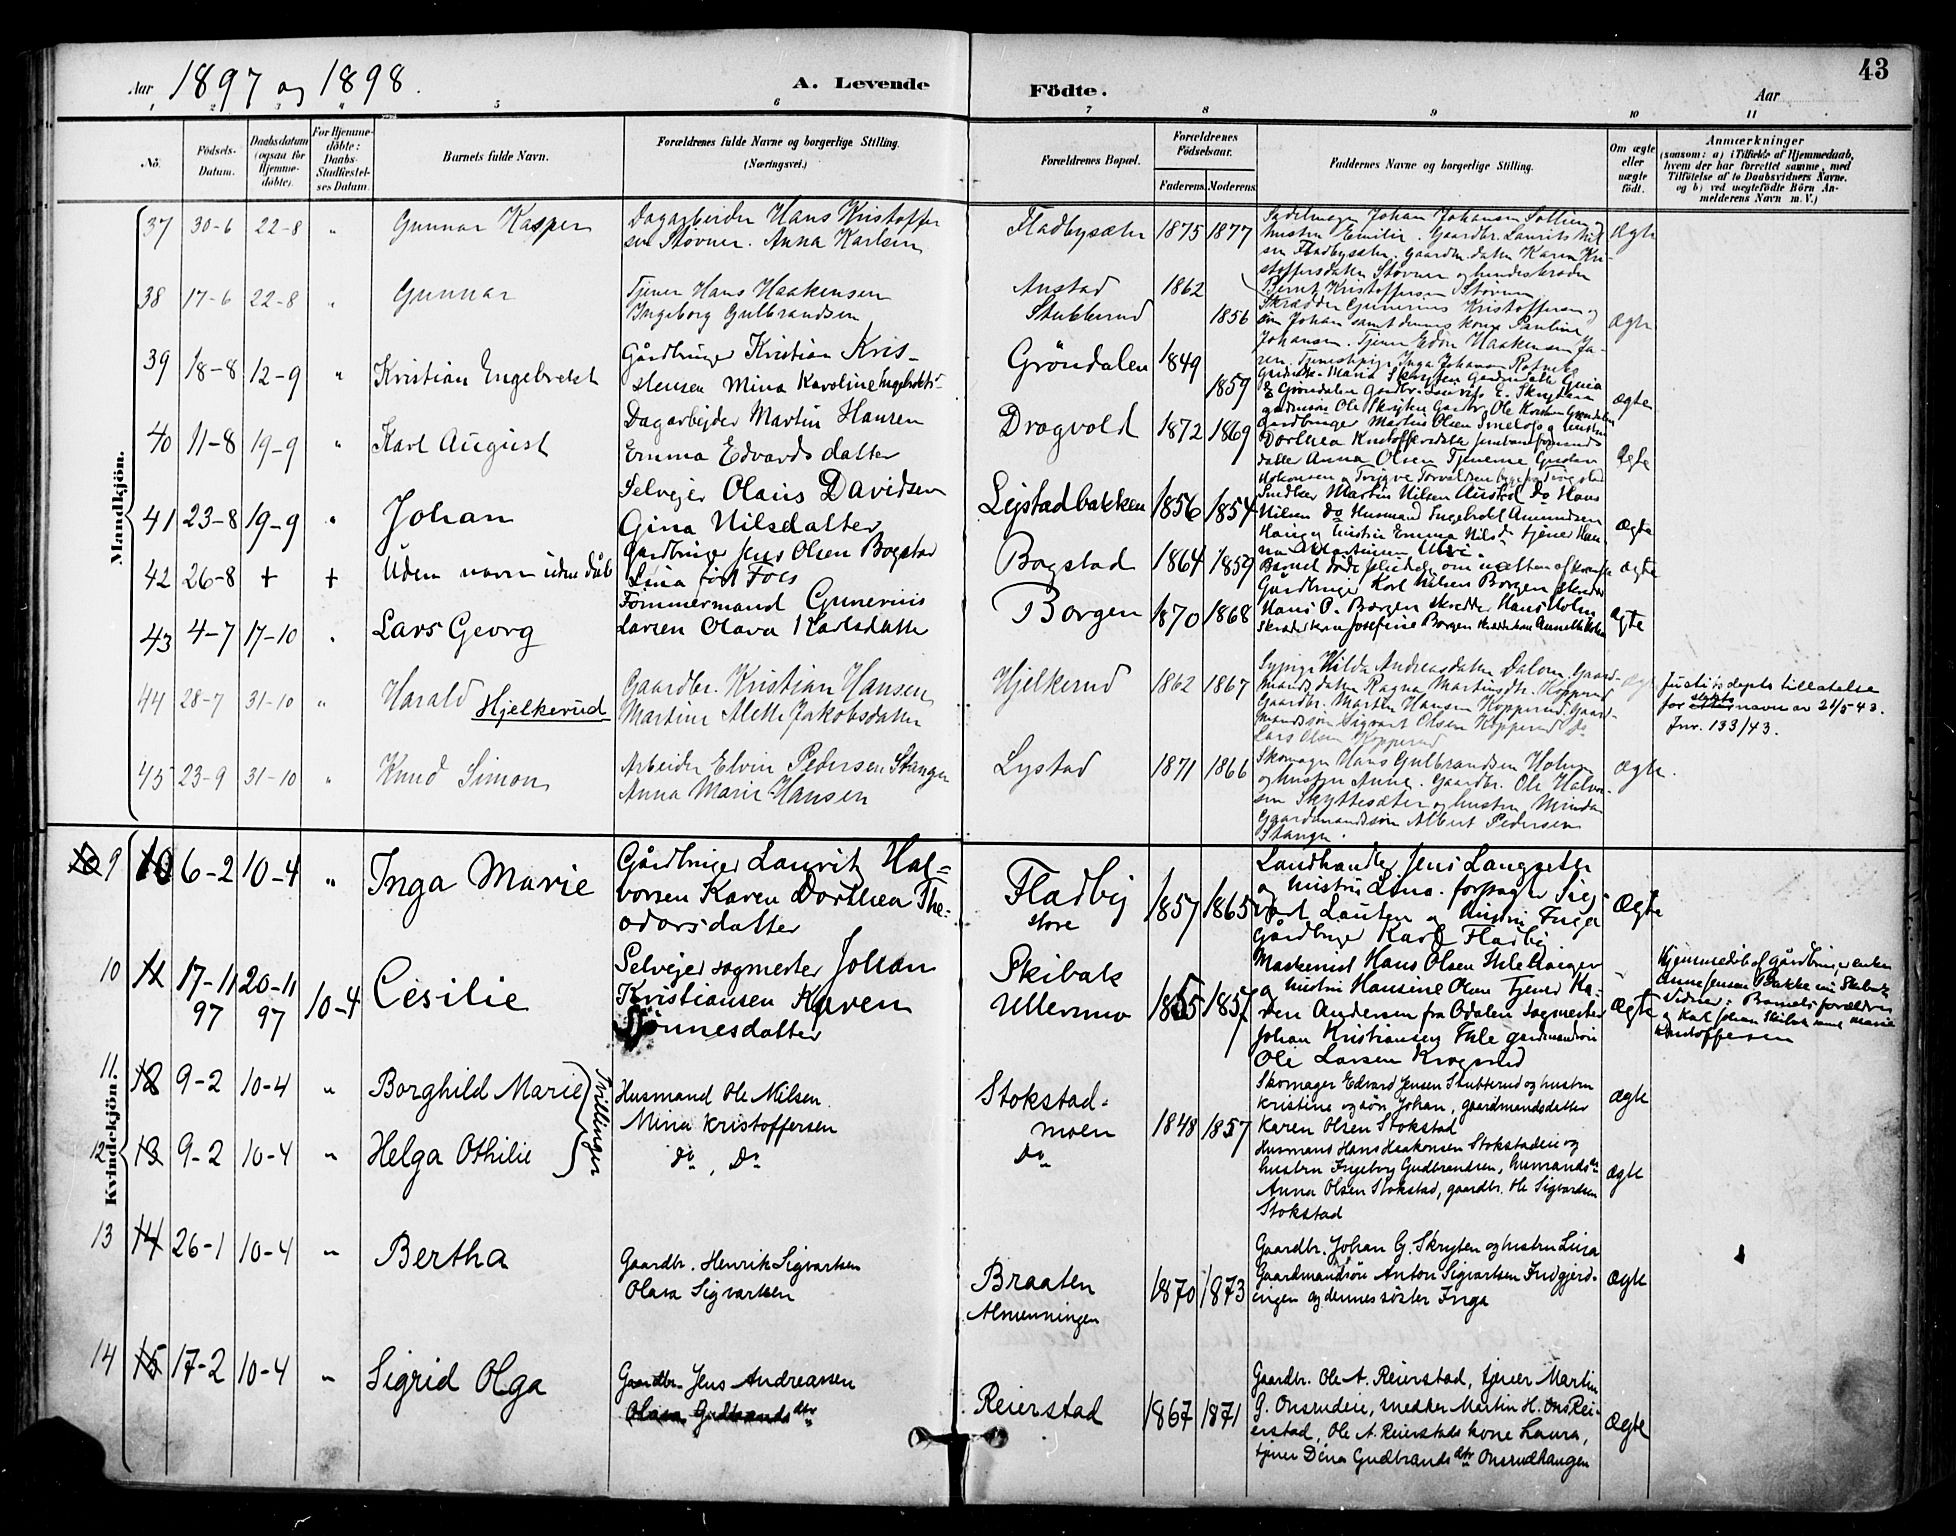 43
Aar 1897 og 1898.
A. Levende Födte.
Aar
1 2 3 4 5 6 7 8 9 10 11
No.
Födsels-Datum.
Daabsdatum (ogsaa for Hjemme-döbte).
For Hjemme-döbte: Daabs-Stadfæstel-ses Datum.
Barnets fulde Navn.
Forældrenes fulde Navne og borgerlige Stilling.
(Næringsvei.)
Forældrenes Bopæl.
Forældrenes Födselsaar.
Faderens. Moderens.
Faddernes Navne og borgerlige Stilling.
Om ægte eller uægte födt.
Anmærkninger
(saasom: a) i Tilfælde af Hjemmedaab, hvem der har forrettet samme, med Tilföielse af to Daabsvidners Navne. og b) ved uægtefödte Börn An-melderens Navn m. V.)
Mandkjön.
37 30-6 22-8 " Gunnar Kasper
Dagarbeider Hans Kristoffer
sen Stovner. Anna Karlsen
Fladbysæter 1875 1877
Sadelmager Johan Johansen
hustru Emilie. Gaardbr. Laurits Nil
sen Fladbysæter. Gaardm.datter Karen Kri
stoffersdatter Stovner og hendes broder
Bernt Kristoffersen Stovner
Ægte
38 17-6 22-8 " Gunnar
Tjener Hans Haakensen
Ingeborg Gulbrandsen
Anstad
Stubberud
1862 1856
Skrædder Gunerius Kristoffersen og
søn Johan samt dennes kone Pauline
Johansen. Tjener Edvin Haakensen
Tjenestepige Inga Johansen
ægte
39 18-8 12-9 " Kristian Engebrekt
Gårdbruger Kristian Kris-
tensen Mina Karoline Engebrektsd
Gröndalen 1849 1859
Grøndalen Gardbr. Laurits E. Skrytten
gardmsøn Ole Skrytten Gardbr. Ole Kristian Grøndalen
ægte
40 11-8 19-9 " Karl August
Dagarbejder Martin Hansen
Emma Edvardsdatter
Dragvold 1872 1869
Gardbruger Martin Olsen og hustru
Dorthea Kristoffersdatter
datter Anna Olsen Tjenerne Gustav
Ægte
41 23-8 19-9 " Johan
Selvejer Olaus Davidsen
Gina Nilsdatter
Lystadbakken 1856 1854
Snedker Martin Nilsen Austad Do Hans
Nilsen do Husmand Engebrekt Amundsen
Haug og hustru Emma Nilsd tjener
ægte
42 26-8 + + Uden navn uden dåb
Gardbruger Jens Olsen Bogstad
Lina født Foss
Bogstad 1864 1859
Barnet døde
ægte
43 4-7 17-10 " Lars Georg
Tømmermand Gunerius
Larsen Olava Karlsdatter
Borgen 1870 1868
Gårdbruger Karl Nilsen Borgen skræder
Hans O. Borgen skredder Hans Holm
Skræderkone Josefine Borgen
ægte
44 28-7 31-10 " Harald Hjelkerud
Gaardbr. Kristian Hansen
Martine Alette Jakobsdatter
Hjelkerud 1862 1867
Sypige Hilda Andreasdatter Dalen. Gaard-
mandsdatter Ragna Martinsdtr. Kopperud
Gaardbr. Morten Hansen Kopperud. Gaard-
mandssøn Sigvart Olsen Kopperud Do
Lars Olsen Kopperud
ægte
Justisdepts tillatelse
for slekts navn av 21/5 43.
Jnr. 133/43.
45 23-9 31-10 " Knud Simon
Arbeider Elvin Pedersen Stangen
Anna Marie Hansen
Lystad 1871 1866
Skomager Hans Gulbrandsen Holm
og hustru Anne. Gaardbr. Ole Halvor-
sen Skyttesæter og hustru Minda
Gaardmandssøn Albert Pedersen
Stangen.
ægte.
Kvindekjön.
9 10 6-2 10-4 " Inga Marie
Gårdbruger Laurits Hal=
vorsen Karen Dorthea The=
odorsdatter
Fladby
store
1857 1865
Landhandler Jens Langseter
og hustru Lina. forpagter Sig
vart Lauten og hustru Inga
Gårdbruger Karl Fladby
Ægte
10 11 17-11 97 20-11 97 10-4 Cesilie
Selvejer sagmester Johan
Kristiansen Karen
Tønnesdatter
Skibak
Ullermo
1855 1857
Maskenist Hans Olsen
og hustru Hansine Olsen Tjener Ka-
ren Andersen fra Odalen Sagmester
Johan Kristiansen Ihle gardmandsøn
Ole Larsen Krogsrud
Ægte
Hjemmedøbt af Gårdbruger enken
Anne Jensen Bakke Skibak
Vidner: Barnets forældre
og Karl Johan Skibak samt Marie
Kristoffersen
11. 12 9-2 10-4 " Borghild Marie
Tvillinger
Husmand Ole Nilsen
Mina Kristoffersen
Stokstad-
moen
1848 1857
Skomager Edvard Jensen Stubberud og hustru
Kristine og søn Johan, gaardmandsdatter
Karen Olsen Stokstad
ægte
12 13 9-2 10-4 " Helga Othilie
Do, Do
Do
Husmand Hans Haakonsen Stokstadeie og
hustru Ingeborg Gudbrandsen, husmandsdtr
Anna Olsen Stokstad, gaardbr. Ole Sigvardsen
Stokstad
ægte
13 14 26-1 10-4 " Bertha
Gaardbr. Henrik Sigvartsen
Olava Sigvartsen
Braaten
Almenningen
1870 1873
Gaardbr. Johan G. Skryten og hustru Lina
Gaardmandsøn Anton Sigvartsen Indgjerd-
ingen og dennes søster Inga
ægte
14 15 17-2 10-4 " Sigrid Olga
Gaardbr. Jens Andreassen
Olava Gudbrandsdtr
Reierstad 1867 1871
Gaardbr. Ole A. Reierstad, tjener Martin
G. Onsrudeie, snedker Martin H. Ons Rei-
erstad, Ole A. Reierstads kone Laura,
tjener Dina Gudbrandsdtr Onsrudhaugen
Ægte